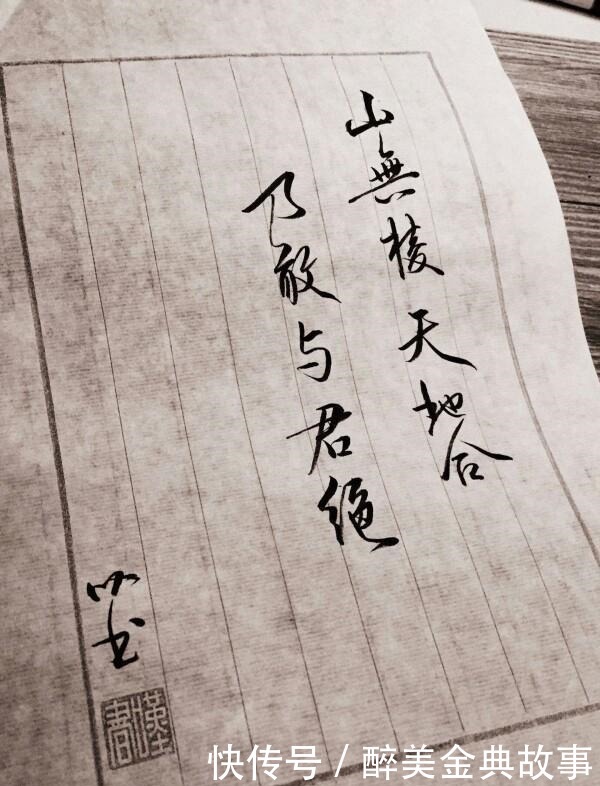 山無棱天地合
乃敢与君绝
书
快传号/醉美金典故事